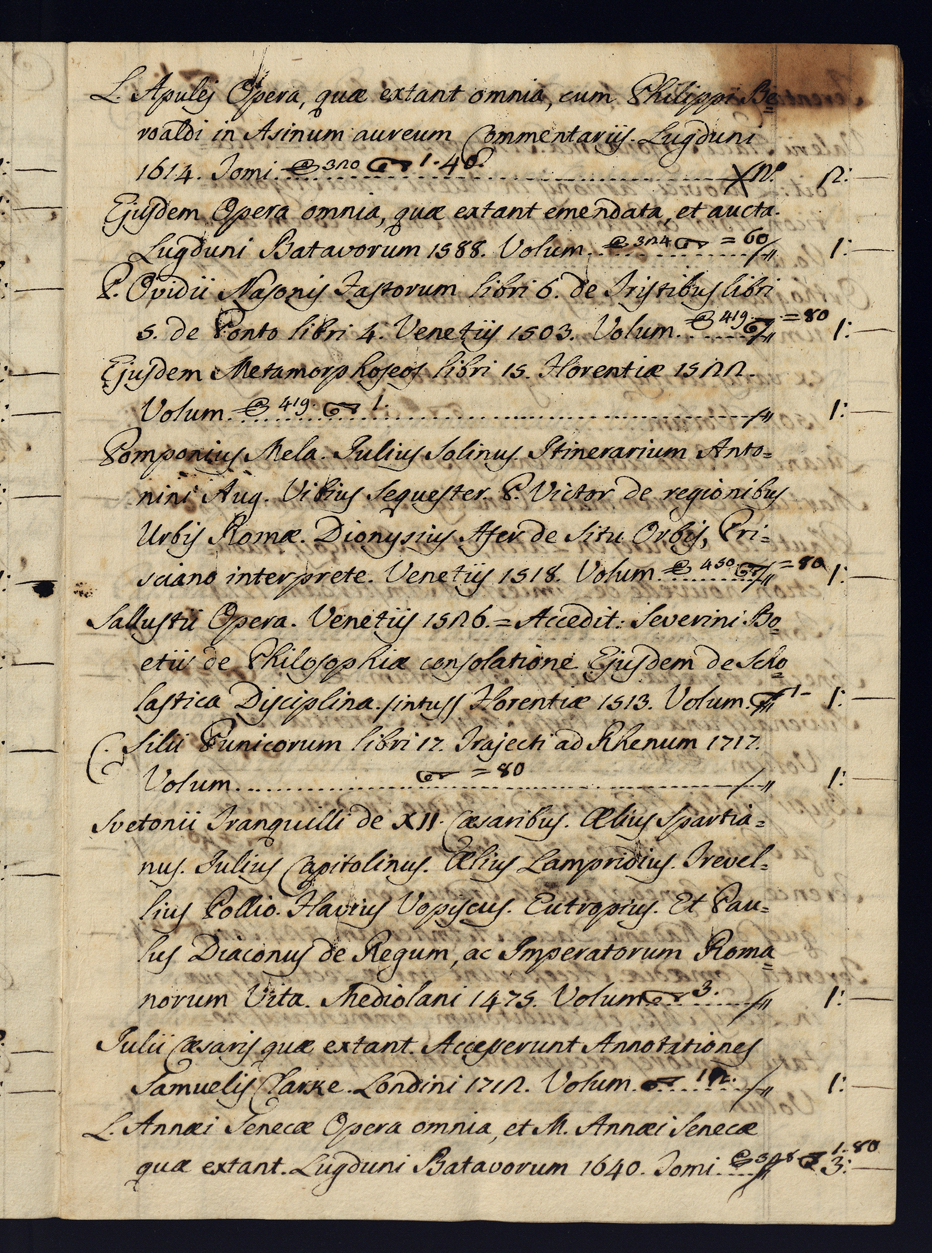 L. Apulej Opera, quæ extant omnia, cum Philippi Be=
roaldi in Asinum aureum Commentariis. Lugduni
1614. Tomi. 320 1.40 2:
Ejusdem Opera omnia, quæ extant emendata, et aucta.
Lugduni Batavorum 1588. Volum. 324 =60 1:
P. Ovidii Nasonis Fastorum libri 6. de Tristibus libri
5. de Ponto libri 4. Venetiis 1503. Volum. 419. =80 1:
Ejusdem Metamorphoseos libri 15. Florentiæ 1522.
Volum. 419. 1. 1:
Pomponius Mela. Julius Solinus. Itinerarium Anto=
nini Aug. Vibius Sequester. P. Victor de regionibus
Urbis Romæ. Dionysius Afer de Situ Orbis, Pri=
sciano interprete. Venetiis 1518. Volum. 450 =80 1:
Sallustii Opera. Venetiis 1526. = Accedit: Severini Bo=
etii de Philosophiæ consolatione. Ejusdem de Scho
lastica Disciplina. Florentiæ 1513. Volum. 1- 1:
C. Silii Punicorum libri 17. Trajecti ad Rhenum 1717.
Volum. =80 1:
Svetonii Tranquilli de XII. Cæsaribus. Ælius Spartia=
nus. Julius Capitolinus. Ælius Lampridius. Trevel=
lius Pollio. Flavius Vopiscus. Eutropius. Et Pau=
lus Diaconus de Regum, ac Imperatorum Roma=
norum Vita. Mediolani 1475. Volum. 3. 1:
Julii Cæsaris quæ extant. Accesserunt Annotationes
Samuelis Clarke. Londini 1712. Volum. 12. 1:
L. Annæi Senecæ Opera omnia, et M. Annæi Senecæ
quæ extant. Lugduni Batavorum 1640. Tomi. 1.80 3: